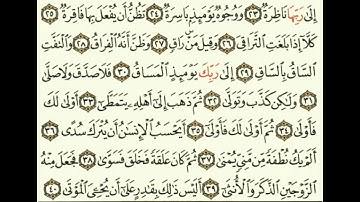 إِلَىٰ رَبِّهَا نَاظِرَةٌ ٢٣ وَوُجُوهٌ يَوْمَئِذٍ بَاسِرَةٌ ٢٤ تَظُنُّ أَن يُفْعَلَ بِهَا فَاقِرَةٌ ٢٥
كَلَّا إِذَا بَلَغَتِ التَّرَاقِيَ ٢٦ وَقِيلَ مَنْ رَاقٍ ٢٧ وَظَنَّ أَنَّهُ الْفِرَاقُ ٢٨ وَالْتَفَّتِ
السَّاقُ بِالسَّاقِ ٢٩ إِلَىٰ رَبِّكَ يَوْمَئِذٍ الْمَسَاقُ ٣٠ فَلَا صَدَّقَ وَلَا صَلَّىٰ
٣١ وَلَٰكِن كَذَّبَ وَتَوَلَّىٰ ٣٢ ثُمَّ ذَهَبَ إِلَىٰ أَهْلِهِ يَتَمَطَّىٰ ٣٣ أَوْلَىٰ لَكَ
فَأَوْلَىٰ ٣٤ ثُمَّ أَوْلَىٰ لَكَ فَأَوْلَىٰ ٣٥ أَيَحْسَبُ الْإِنسَانُ أَن يُتْرَكَ سُدًى ٣٦
أَلَمْ يَكُ نُطْفَةً مِّن مَّنِيٍّ يُمْنَىٰ ٣٧ ثُمَّ كَانَ عَلَقَةً فَخَلَقَ فَسَوَّىٰ ٣٨ فَجَعَلَ مِنْهُ
الزَّوْجَيْنِ الذَّكَرَ وَالْأُنثَىٰ ٣٩ أَلَيْسَ ذَٰلِكَ بِقَادِرٍ عَلَىٰ أَن يُحْيِيَ الْمَوْتَىٰ ٤٠